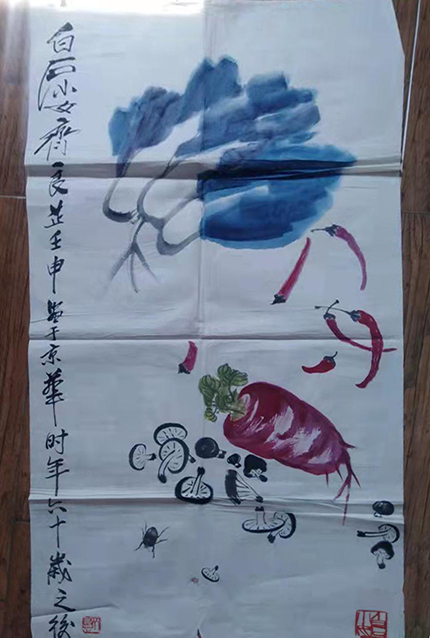 白石小女齊良芷壬申于京華时年六十歲之後